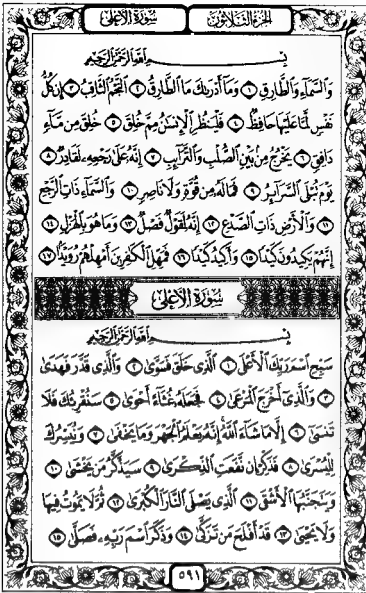 سُورَةُ الأَعْلَى الجُزْءُ الثَّلَاثُونَ
بِسْمِ اللَّهِ الرَّحْمَٰنِ الرَّحِيمِ
وَالسَّمَاءِ وَالطَّارِقِ ١ وَمَا أَدْرَىٰكَ مَا الطَّارِقُ ٢ النَّجْمُ الثَّاقِبُ ٣ إِن كُلُّ
نَفْسٍ لَّمَّا عَلَيْهَا حَافِظٌ ٤ فَلْيَنظُرِ الْإِنسَٰنُ مِمَّ خُلِقَ ٥ خُلِقَ مِن مَّاءٍ
دَافِقٍ ٦ يَخْرُجُ مِن بَيْنِ الصُّلْبِ وَالتَّرَائِبِ ٧ إِنَّهُ عَلَىٰ رَجْعِهِ لَقَادِرٌ ٨
يَوْمَ تُبْلَى السَّرَائِرُ ٩ فَمَا لَهُ مِن قُوَّةٍ وَلَا نَاصِرٍ ١٠ وَالسَّمَاءِ ذَاتِ الرَّجْعِ
١١ وَالْأَرْضِ ذَاتِ الصَّدْعِ ١٢ إِنَّهُ لَقَوْلٌ فَصْلٌ ١٣ وَمَا هُوَ بِالْهَزْلِ ١٤
إِنَّهُمْ يَكِيدُونَ كَيْدًا ١٥ وَأَكِيدُ كَيْدًا ١٦ فَمَهِّلِ الْكَٰفِرِينَ أَمْهِلْهُمْ رُوَيْدًا ١٧
سُورَةُ الأَعْلَى
بِسْمِ اللَّهِ الرَّحْمَٰنِ الرَّحِيمِ
سَبِّحِ اسْمَ رَبِّكَ الْأَعْلَى ١ الَّذِي خَلَقَ فَسَوَّىٰ ٢ وَالَّذِي قَدَّرَ فَهَدَىٰ
٣ وَالَّذِي أَخْرَجَ الْمَرْعَىٰ ٤ فَجَعَلَهُ غُثَاءً أَحْوَىٰ ٥ سَنُقْرِئُكَ فَلَا
تَنسَىٰ ٦ إِلَّا مَا شَاءَ اللَّهُ إِنَّهُ يَعْلَمُ الْجَهْرَ وَمَا يَخْفَىٰ ٧ وَنُيَسِّرُكَ
لِلْيُسْرَىٰ ٨ فَذَكِّرْ إِن نَّفَعَتِ الذِّكْرَىٰ ٩ سَيَذَّكَّرُ مَن يَخْشَىٰ ١٠
وَيَتَجَنَّبُهَا الْأَشْقَى ١١ الَّذِي يَصْلَى النَّارَ الْكُبْرَىٰ ١٢ ثُمَّ لَا يَمُوتُ فِيهَا
وَلَا يَحْيَىٰ ١٣ قَدْ أَفْلَحَ مَن تَزَكَّىٰ ١٤ وَذَكَرَ اسْمَ رَبِّهِ فَصَلَّىٰ ١٥
٥٩١